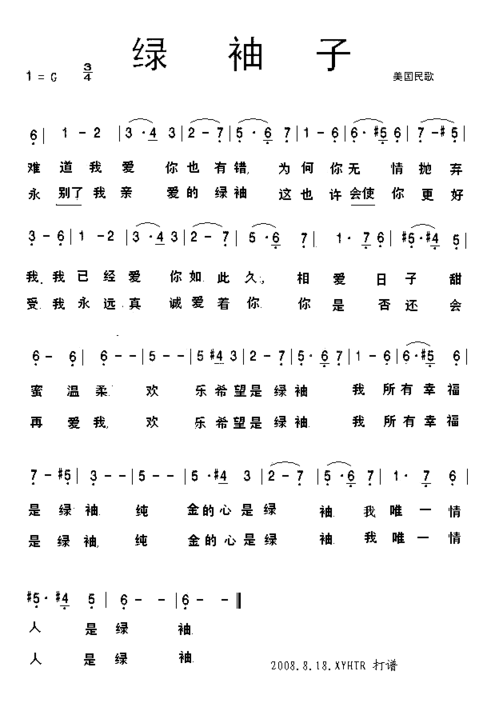 绿 袖 子
1 = G 3/4 美国民歌
6 | 1 - 2 | 3· 4 3 | 2 - 7 | 5· 6 7 | 1 - 6 | 6· #5 6 | 7 - #5 |
难 道 我 爱 你 也 有 错, 为 何 你 无 情 抛 弃
永 别了 我 亲 爱 的 绿 袖 这 也 许 会使 你 更 好
3 - 6 | 1 - 2 | 3· 4 3 | 2 - 7 | 5· 6 7 | 1· 7 6 | #5· #4 5 |
我, 我 已 经 爱 你 如 此 久, 相 爱 日 子 甜
受, 我 永 远 真 诚 爱 着 你, 你 是 否 还 会
6 - 6 | 6 - - | 5 - - | 5 #4 3 | 2 - 7 | 5· 6 7 | 1 - 6 | 6· #5 6 |
蜜 温 柔, 欢 乐 希 望 是 绿 袖 我 所 有 幸 福
再 爱 我, 欢 乐 希 望 是 绿 袖 我 所 有 幸 福
7 - #5 | 3 - - | 5 - - | 5· #4 3 | 2 - 7 | 5· 6 7 | 1· 7 6 |
是 绿 袖, 纯 金 的 心 是 绿 袖 我 唯 一 情
是 绿 袖, 纯 金 的 心 是 绿 袖 我 唯 一 情
#5· #4 5 | 6 - - | 6 - ‖
人 是 绿 袖
人 是 绿 袖
2008.8.18.XYHTR 打谱